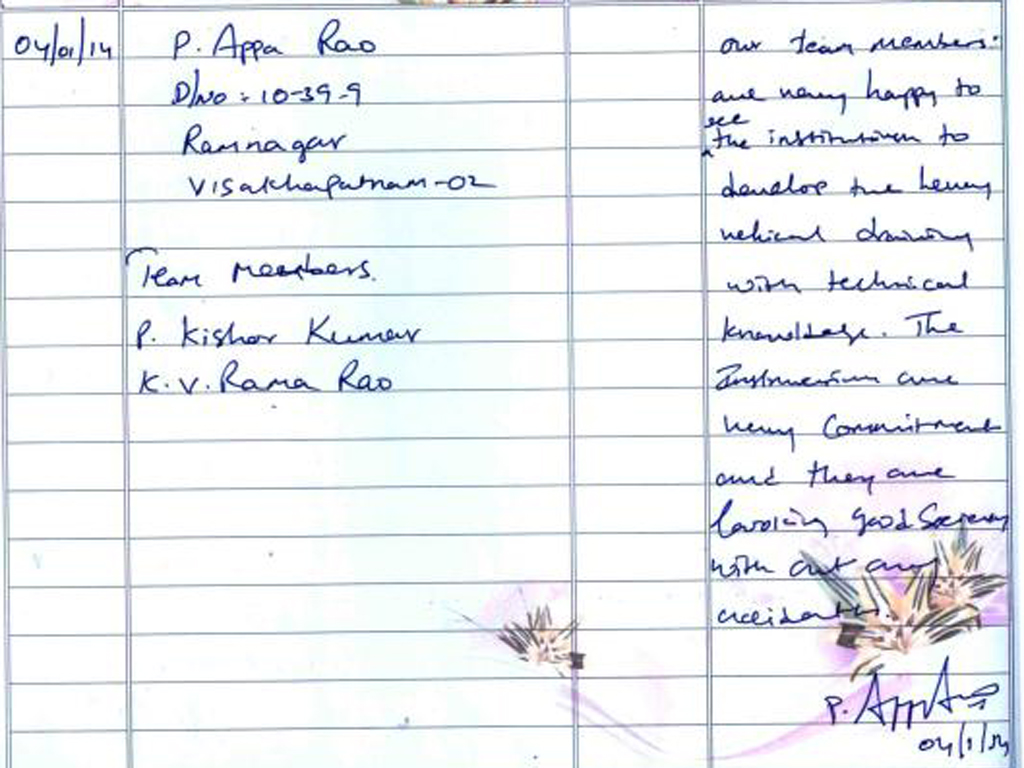 04/01/14
P. Appa Rao
D/No: 10-39-9
Ramnagar
Visakhapatnam-02
Team Members.
P. Kishor Kumar
K.V. Rama Rao
our team members
are very happy to
see
the institution to
develop the heavy
vehical driving
with technical
knowledge. The
are
very Commitment
and they are
good Society
with out any
accidents.
P. App
04/1/14